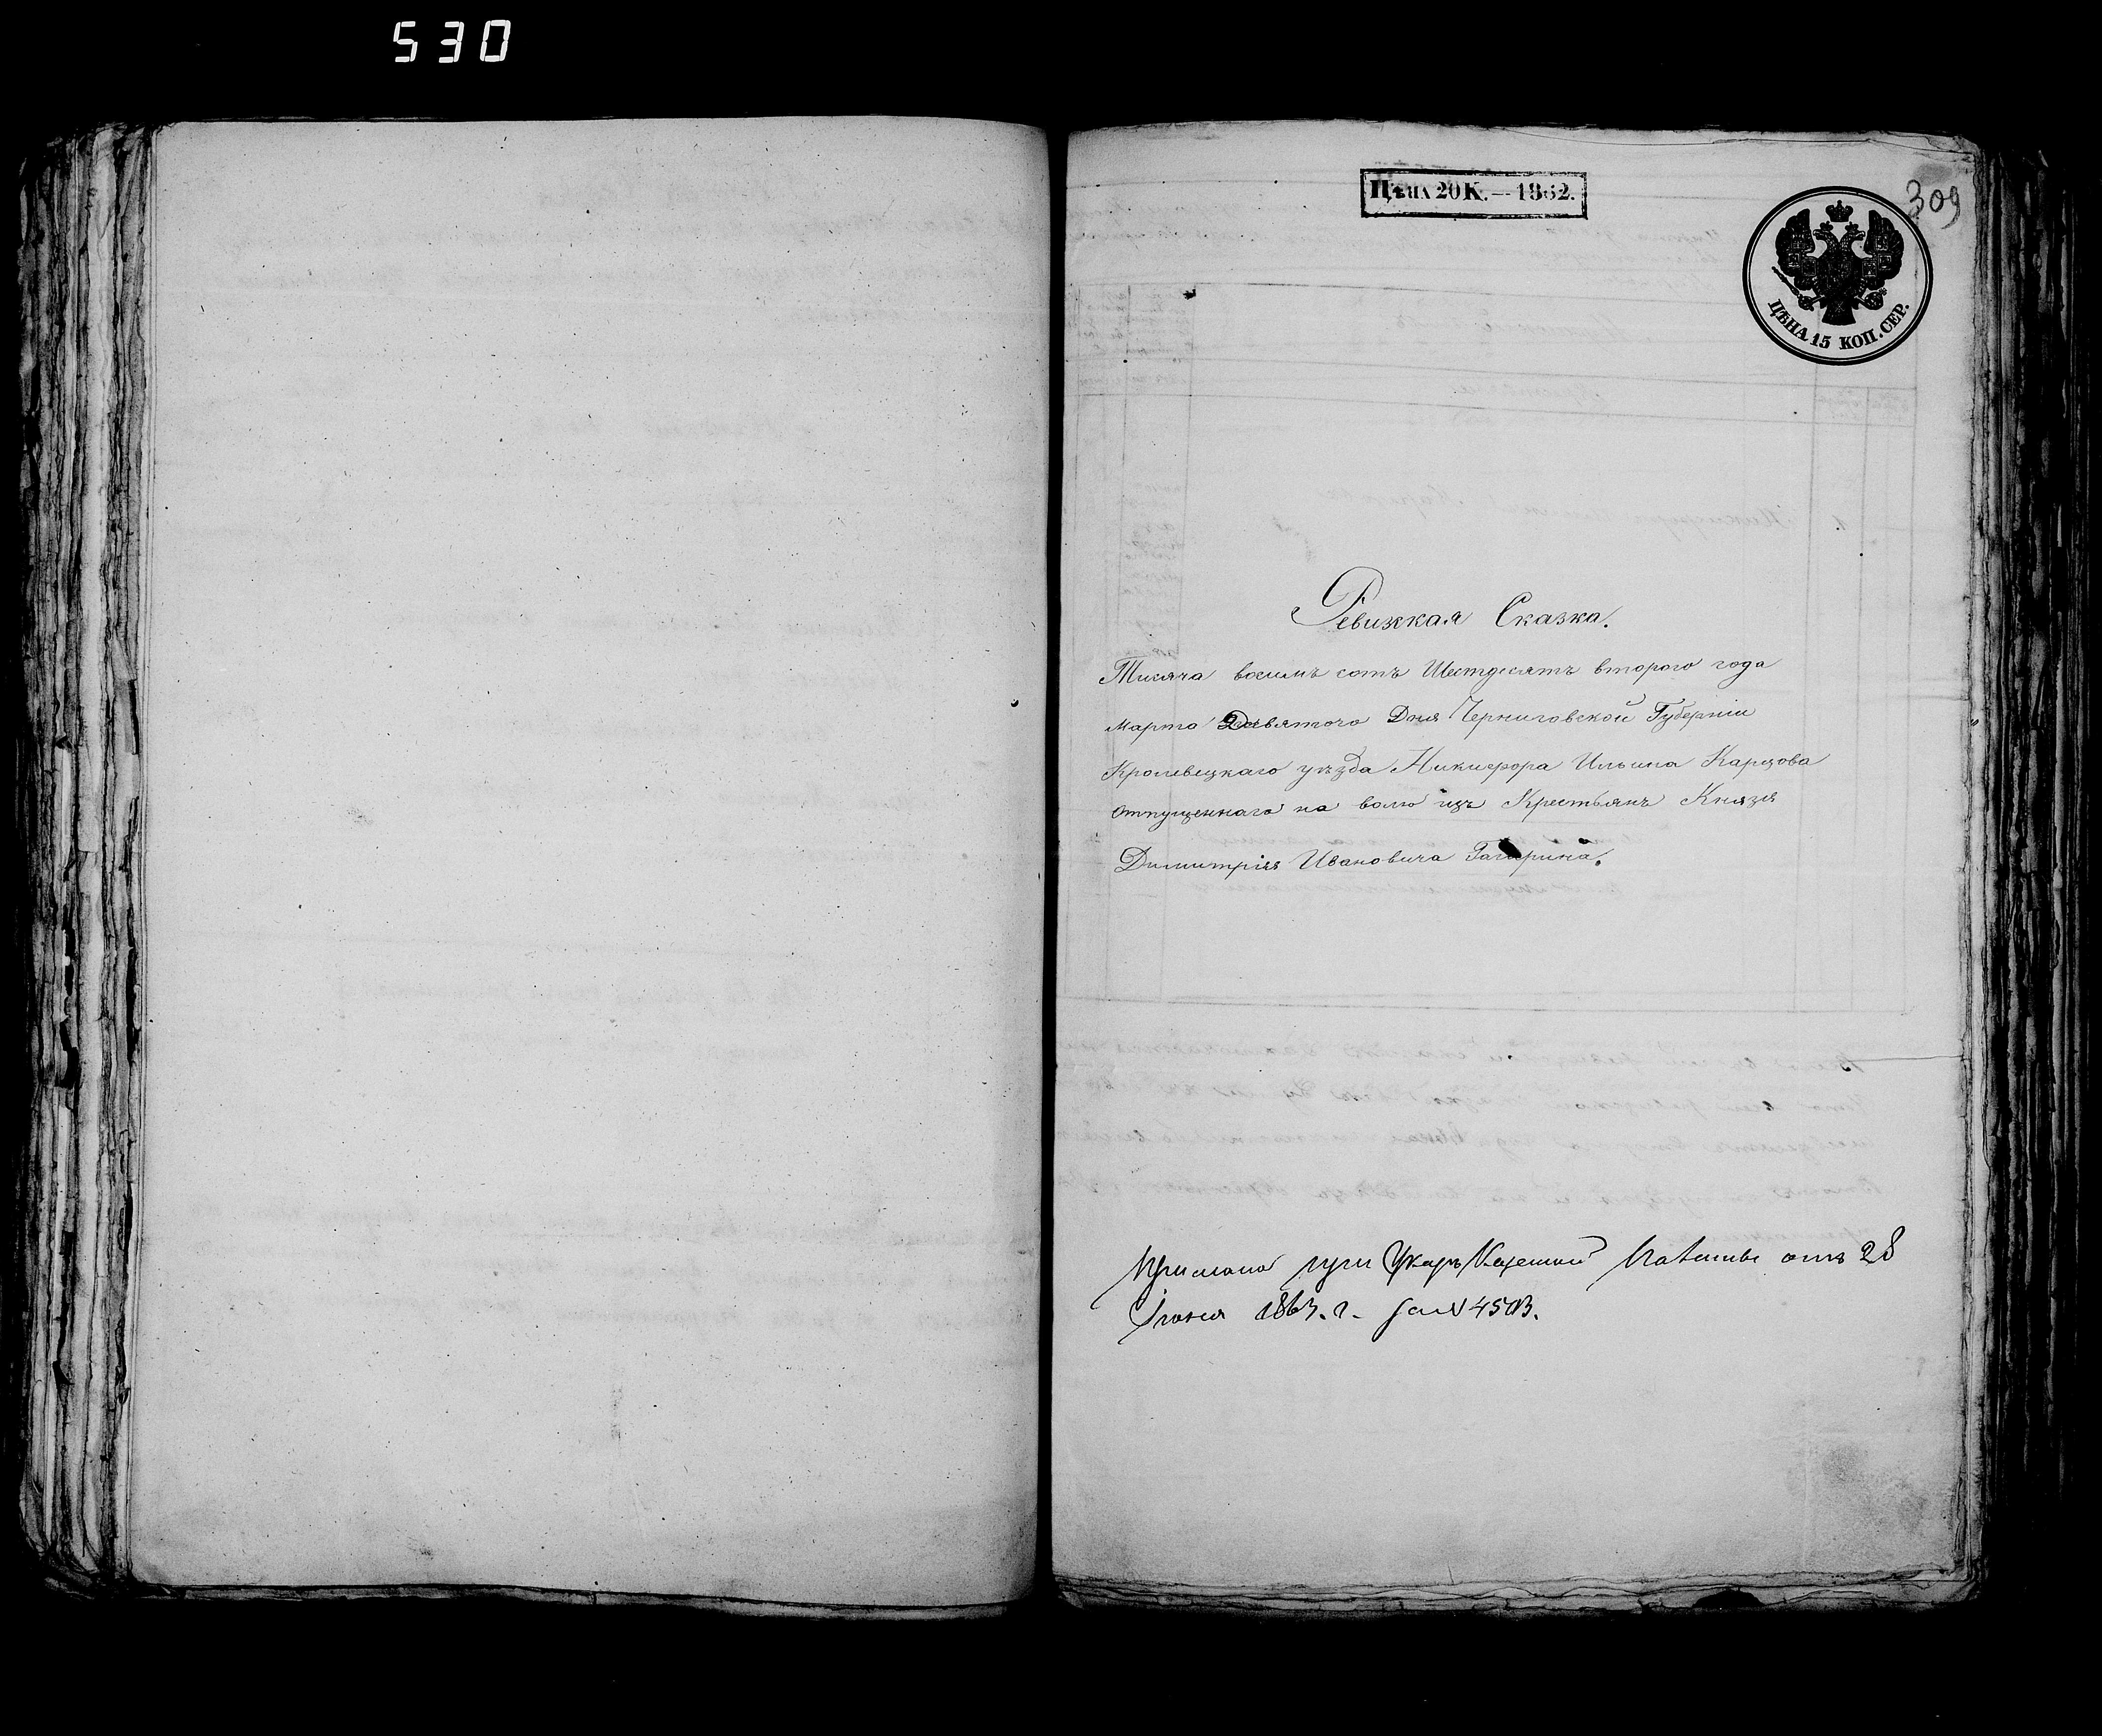 530
Цѣна 20 К.—1862.
309
ЦѢНА 15 КОП. СЕР.
Ревизкая Сказка.
Тисяча восимъ сотъ Шестдесятъ второго года
марта Девятого Дня Черниговской Губерніи
Кролевецкаго уѣзда Никифора Ильина Карцова
отпущеннаго на волю изъ Крестьянъ Князя
Димитрія Ивановича Гагарина.
при Указѣ Казенной Палаты отъ 28
Іюня 1863. г. за № 4503.